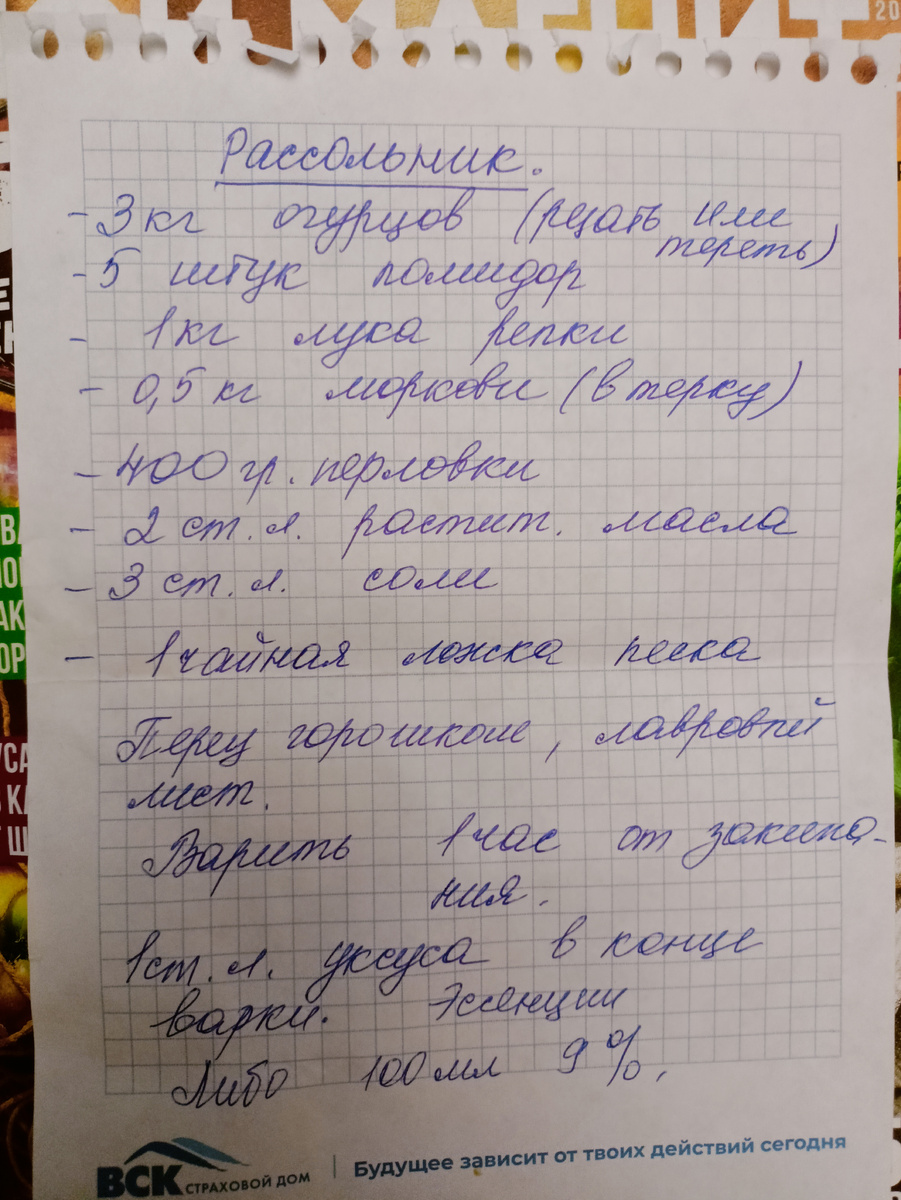 Рассольник.
- 3 кг огурцов (резать или
тереть)
- 5 штук помидор
- 1 кг лука репки
- 0,5 кг моркови (в терку)
- 400 гр. перловки
- 2 ст. л. растит. масла
- 3 ст. л. соли
- 1 чайная ложка песка
Перец горошком, лавровый
лист.
Варить 1 час от закипа-
ния.
1 ст. л. уксуса в конце
варки. Эссенции
Либо 100 мл 9%.
ВСК СТРАХОВОЙ ДОМ | Будущее зависит от твоих действий сегодня